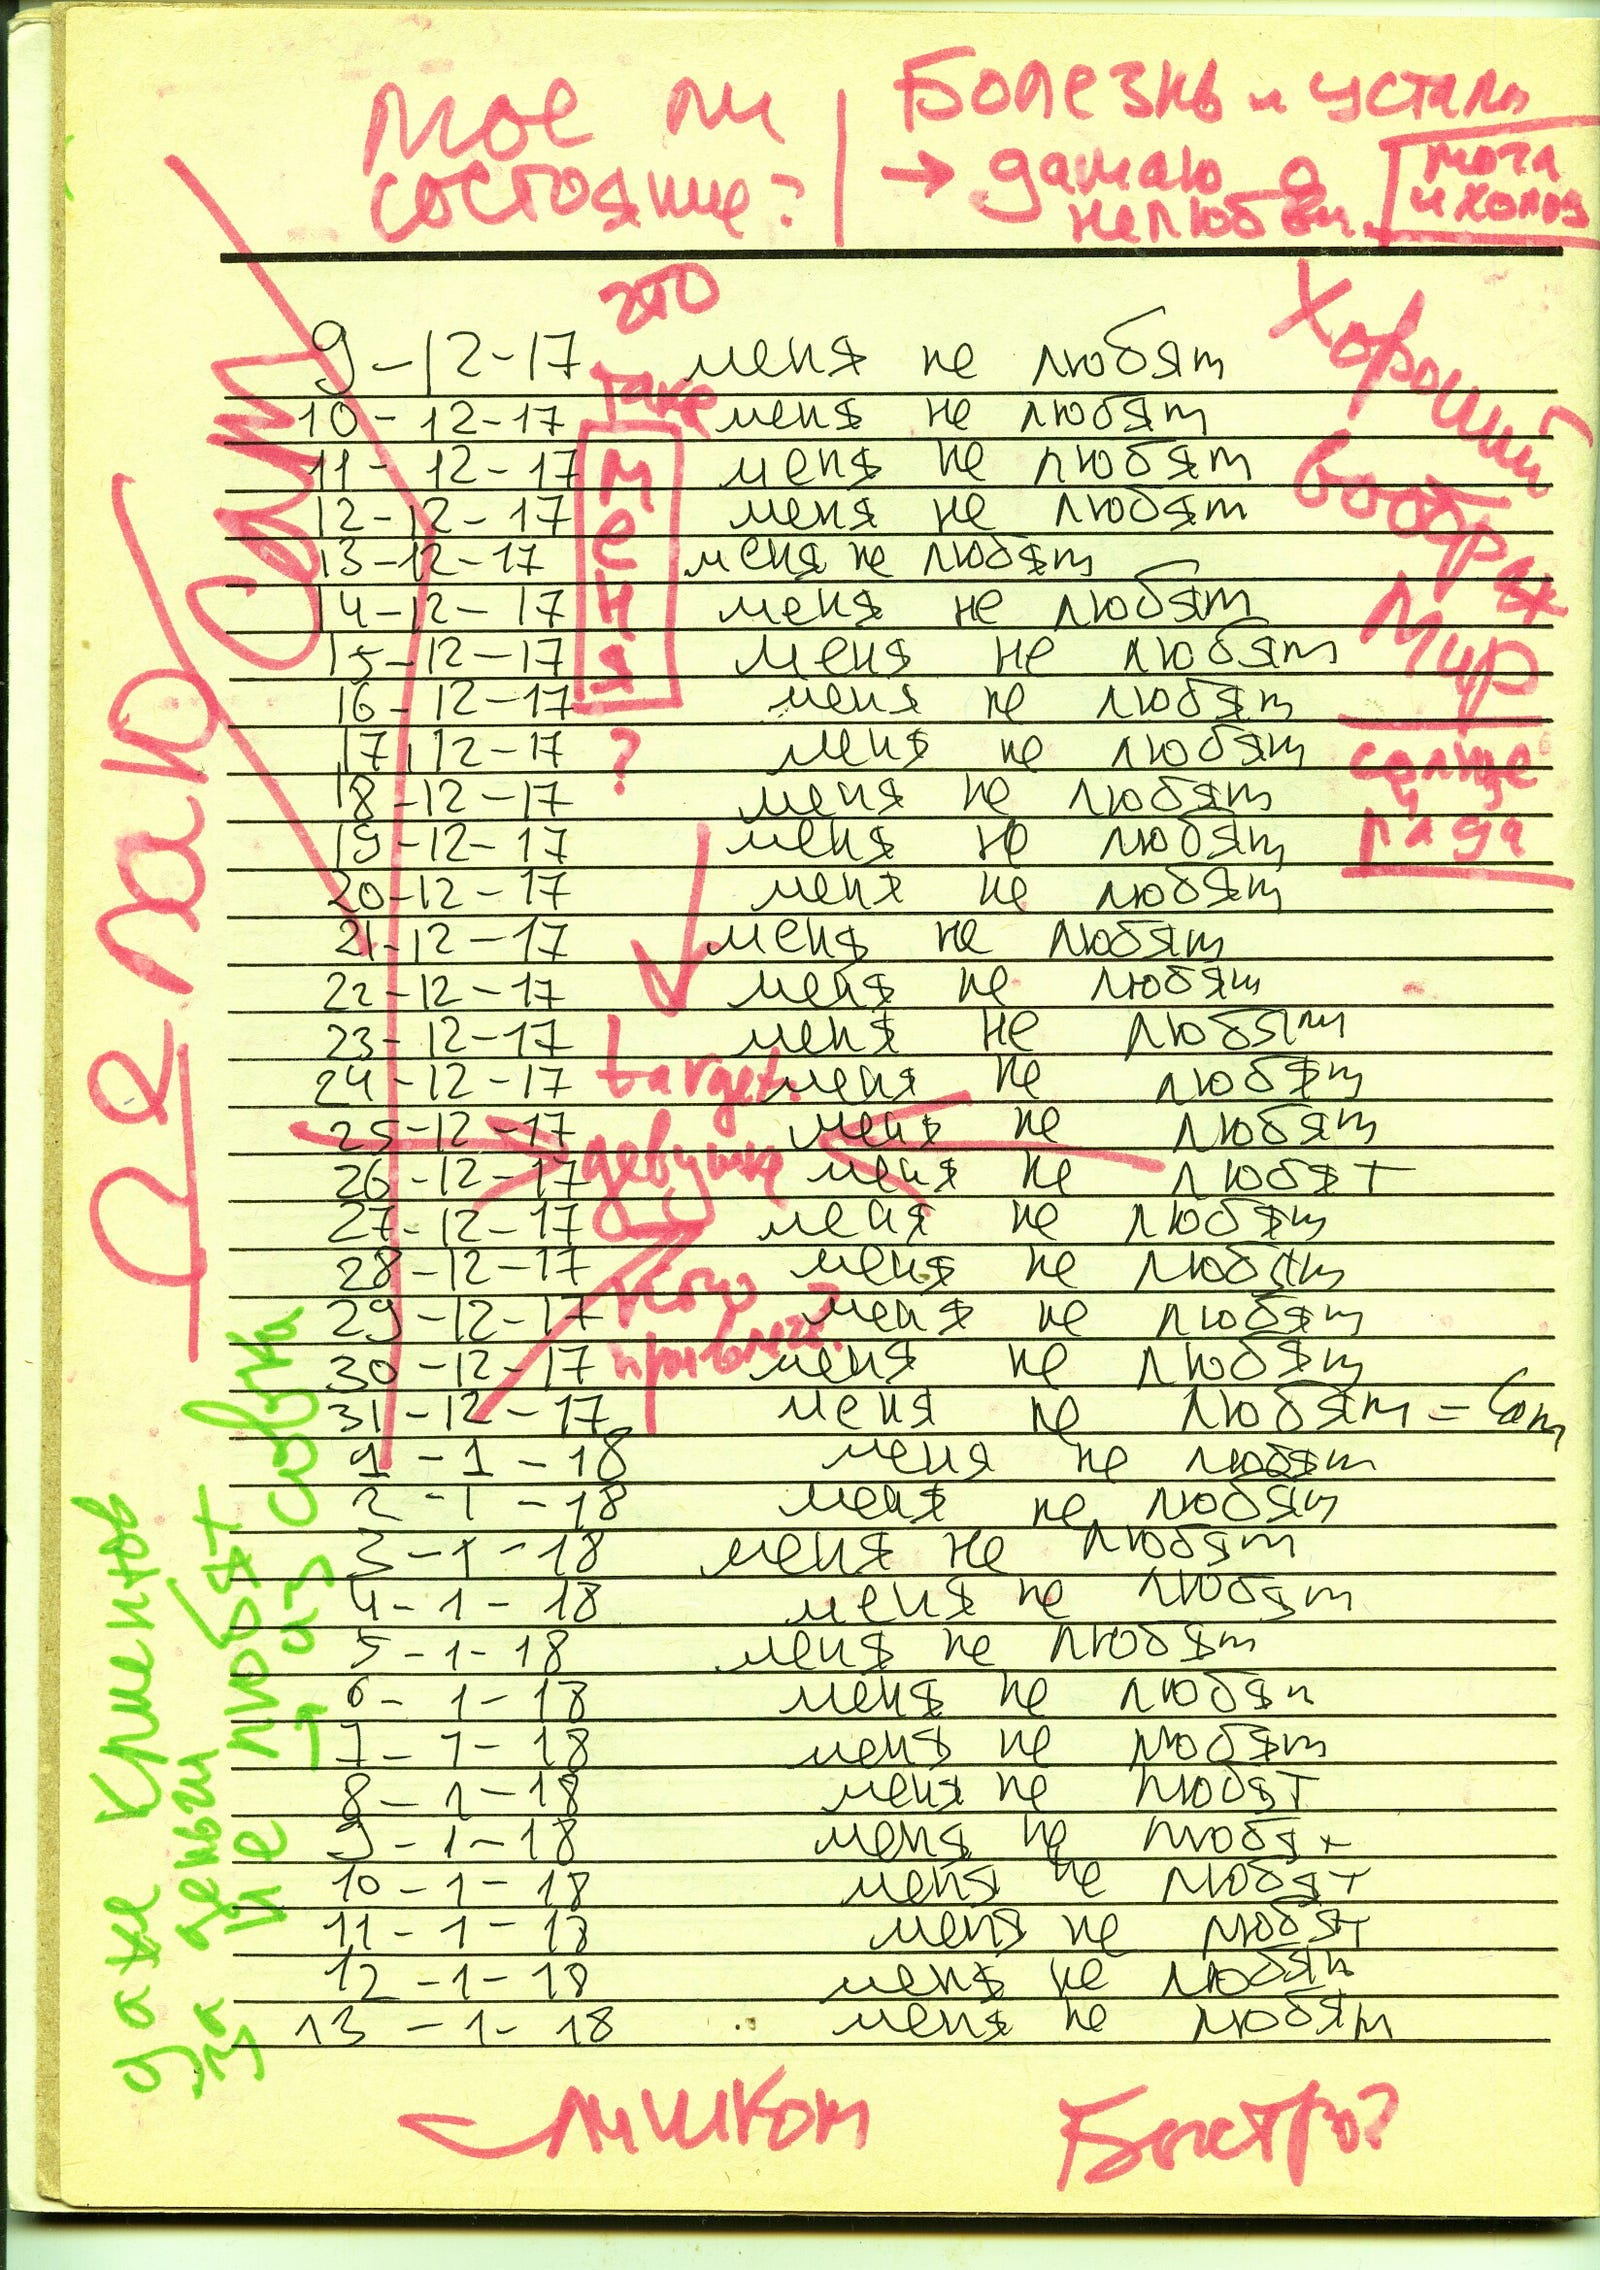 мое ли
состояние?
Болезнь и
→ думаю о
нелюбви
это
9-12-17 меня не любят
10-12-17 меня не любят
11-12-17 меня не любят
12-12-17 меня не любят
13-12-17 меня не любят
14-12-17 меня не любят
15-12-17 меня не любят
16-12-17 меня не любят
17-12-17 меня не любят
18-12-17 меня не любят
19-12-17 меня не любят
20-12-17 меня не любят
21-12-17 меня не любят
22-12-17 меня не любят
23-12-17 меня не любят
24-12-17 меня не любят
25-12-17 меня не любят
26-12-17 меня не любят
27-12-17 меня не любят
28-12-17 меня не любят
29-12-17 меня не любят
30-12-17 меня не любят
31-12-17 меня не любят =
1-1-18 меня не любят
2-1-18 меня не любят
3-1-18 меня не любят
4-1-18 меня не любят
5-1-18 меня не любят
6-1-18 меня не любят
7-1-18 меня не любят
8-1-18 меня не любят
9-1-18 меня не любят
10-1-18 меня не любят
11-1-18 меня не любят
12-1-18 меня не любят
13-1-18 меня не любят
меня
?
target
девушке
кого
Хороший
воображ
мир
солнце
Делаю
Сам
даже Клиентов
за деньги
не любят
→ из совка
Слишком Быстро?